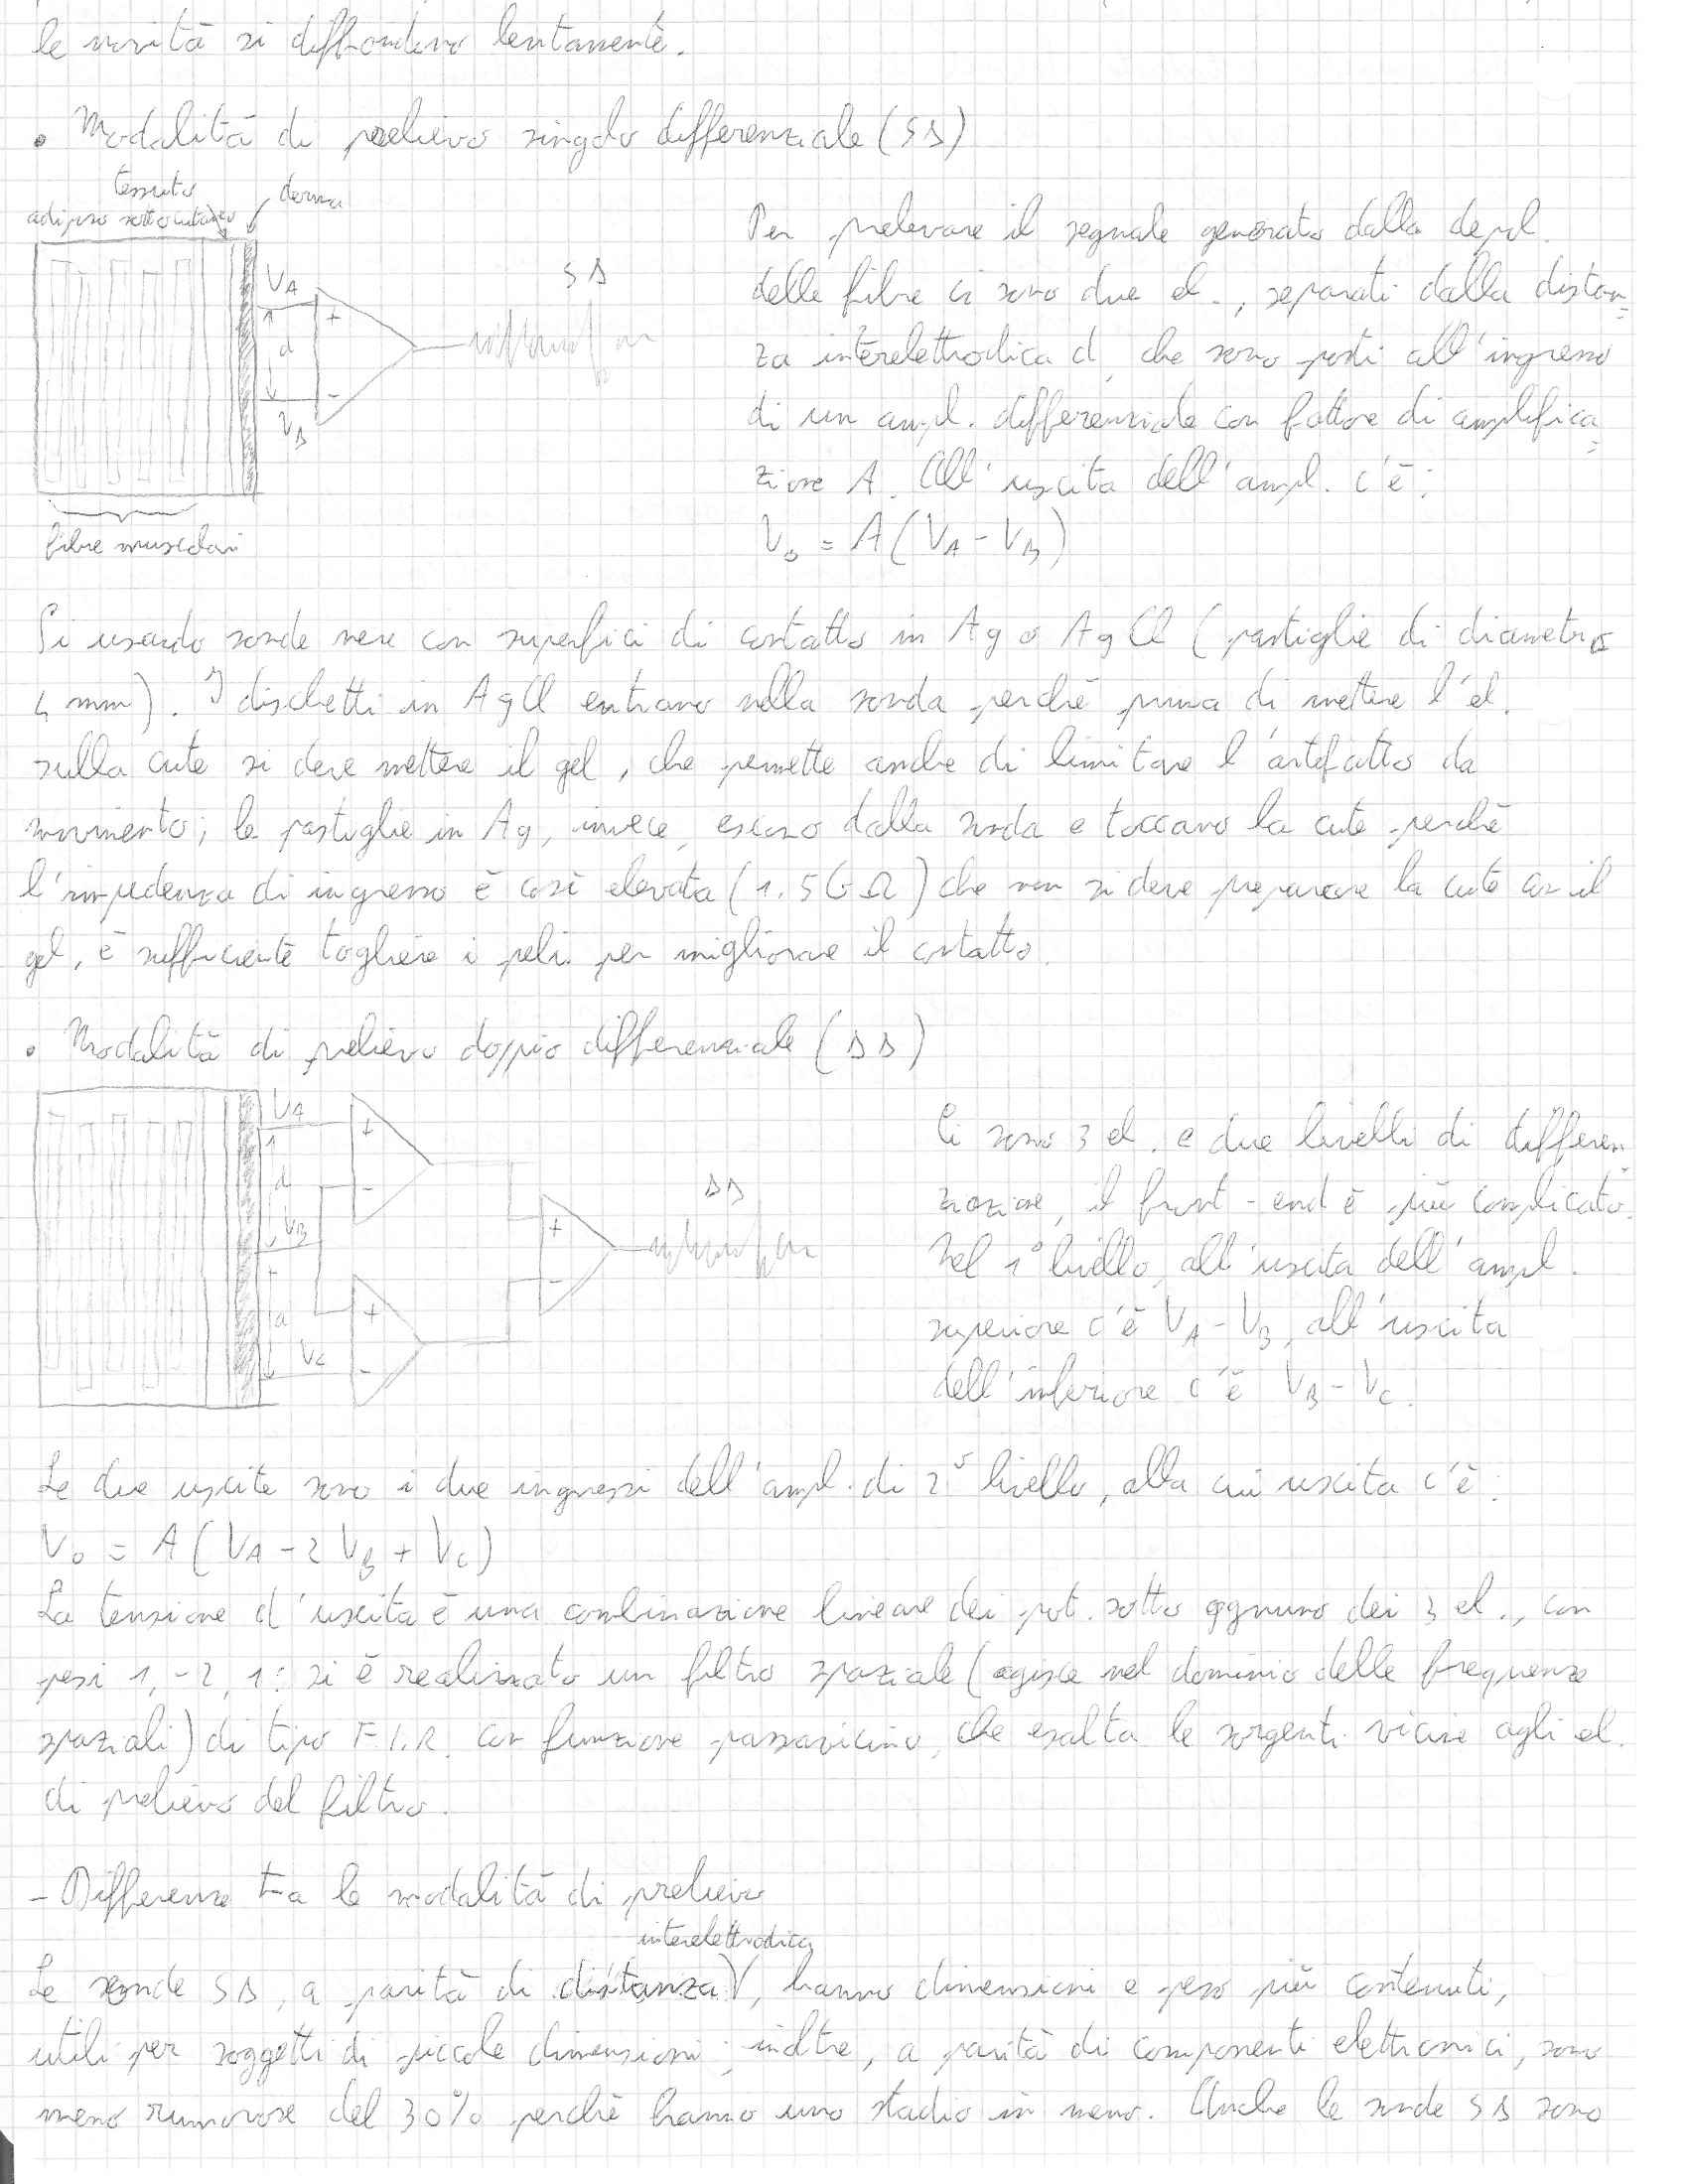 le novità si diffondono lentamente.
• Modalità di prelievo singolo differenziale (SD)
tessuto
adiposo sottocutaneo
derma
VA
d
VB
+
-
SD
fibre muscolari
Per prelevare il segnale generato dalla depol.
delle fibre ci sono due el., separati dalla distan=
za interelettrodica d, che sono posti all'ingresso
di un ampl. differenziale con fattore di amplifica=
zione A. All'uscita dell'ampl. c'è:
Vo = A(VA - VB)
Si usando sonde nere con superfici di contatto in Ag o AgCl (pastiglie di diametro
4 mm). I dischetti in AgCl entrano nella sonda perchè prima di mettere l'el.
sulla cute si deve mettere il gel, che permette anche di limitare l'artefatto da
movimento; le pastiglie in Ag, invece, escono dalla sonda e toccano la cute perchè
l'impedenza di ingresso è così elevata (1.5GΩ) che non si deve preparare la cute con il
gel, è sufficiente togliere i peli per migliorare il contatto.
• Modalità di prelievo doppio differenziale (DD)
VA
d
VB
d
VC
+
-
+
-
+
-
DD
Ci sono 3 el. e due livelli di differen=
ziazione, il front-end è più complicato.
Nel 1° livello, all'uscita dell'ampl.
superiore c'è VA - VB, all'uscita
dell'inferiore c'è VB - VC.
Le due uscite sono i due ingressi dell'ampl. di 2° livello, alla cui uscita c'è:
Vo = A(VA - 2VB + VC)
La tensione d'uscita è una combinazione lineare dei pot. sotto ognuno dei 3 el., con
pesi 1, -2, 1: si è realizzato un filtro spaziale (agisce nel dominio delle frequenze
spaziali) di tipo F.I.R. con funzione passavicino, che esalta le sorgenti vicine agli el.
di prelievo del filtro.
- Differenze tra le modalità di prelievo
interelettrodica
Le sonde SD, a parità di distanza V, hanno dimensioni e peso più contenuti,
utili per soggetti di piccole dimensioni; inoltre, a parità di componenti elettronici, sono
meno rumorose del 30% perchè hanno uno stadio in meno. Anche le sonde SD sono